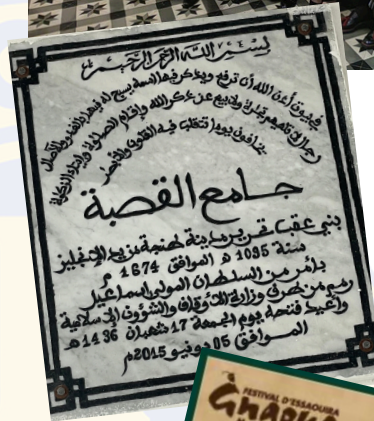 بسم الله الرحمن الرحيم
في بيوت أذن الله أن ترفع ويذكر فيها اسمه يسبح له فيها بالغدو والآصال
رجال لا تلهيهم تجارة ولا بيع عن ذكر الله وإقام الصلاة وإيتاء الزكاة
يخافون يوما تتقلب فيه القلوب والأبصار
جامع القصبة
بني عقب تحرير مدينة طنجة من يد الإنجليز
سنة 1095 هـ الموافق 1674 م
بأمر من السلطان المولى إسماعيل
رمم من طرف وزارة الأوقاف والشؤون الإسلامية
وأعيد فتحه يوم الجمعة 17 شعبان 1436 هـ
الموافق 05 يونيو 2015م
FESTIVAL D'ESSAOUIRA